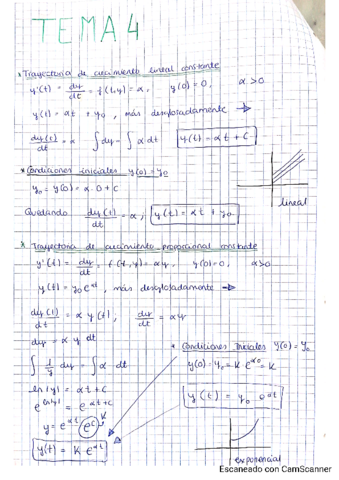 TEMA 4
* Trayectoria de crecimiento lineal constante
y'(t) = dy/dt = f(t,y) = α, y(0) = 0, α > 0
y(t) = αt + y₀, más desglosadamente →
dy(t)/dt = α ∫dy = ∫α dt y(t) = αt + C
* Condiciones iniciales y(0) = y₀
y₀ = y(0) = α · 0 + C
Quedando dy(t)/dt = α, y(t) = αt + y₀
lineal
* Trayectoria de crecimiento proporcional constante
y'(t) = dy/dt = f(t,y) = αy, y(0) = 0, α > 0
y(t) = y₀e^αt, más desglosadamente →
dy(t)/dt = α y(t), dy/dt = αy
dy = α y dt
∫ 1/y dy = ∫α · dt
ln|y| = αt + C
e^ln|y| = e^αt+C
y = e^αt e^C k
y(t) = K e^αt
* Condiciones Iniciales y(0) = y₀
y(0) = y₀ = K e^α0 = K
y(t) = y₀ e^αt
exponencial
Escaneado con CamScanner